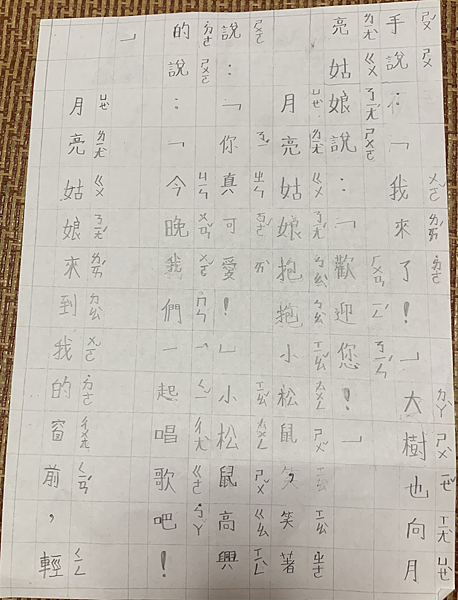 手說：「我來了！」大樹也向月
亮姑娘說：「歡迎您！」
月亮姑娘抱抱小松鼠，笑著
說：「你真可愛！」小松鼠高興
的說：「今晚我們一起唱歌吧！
」
月亮姑娘來到我的窗前，輕